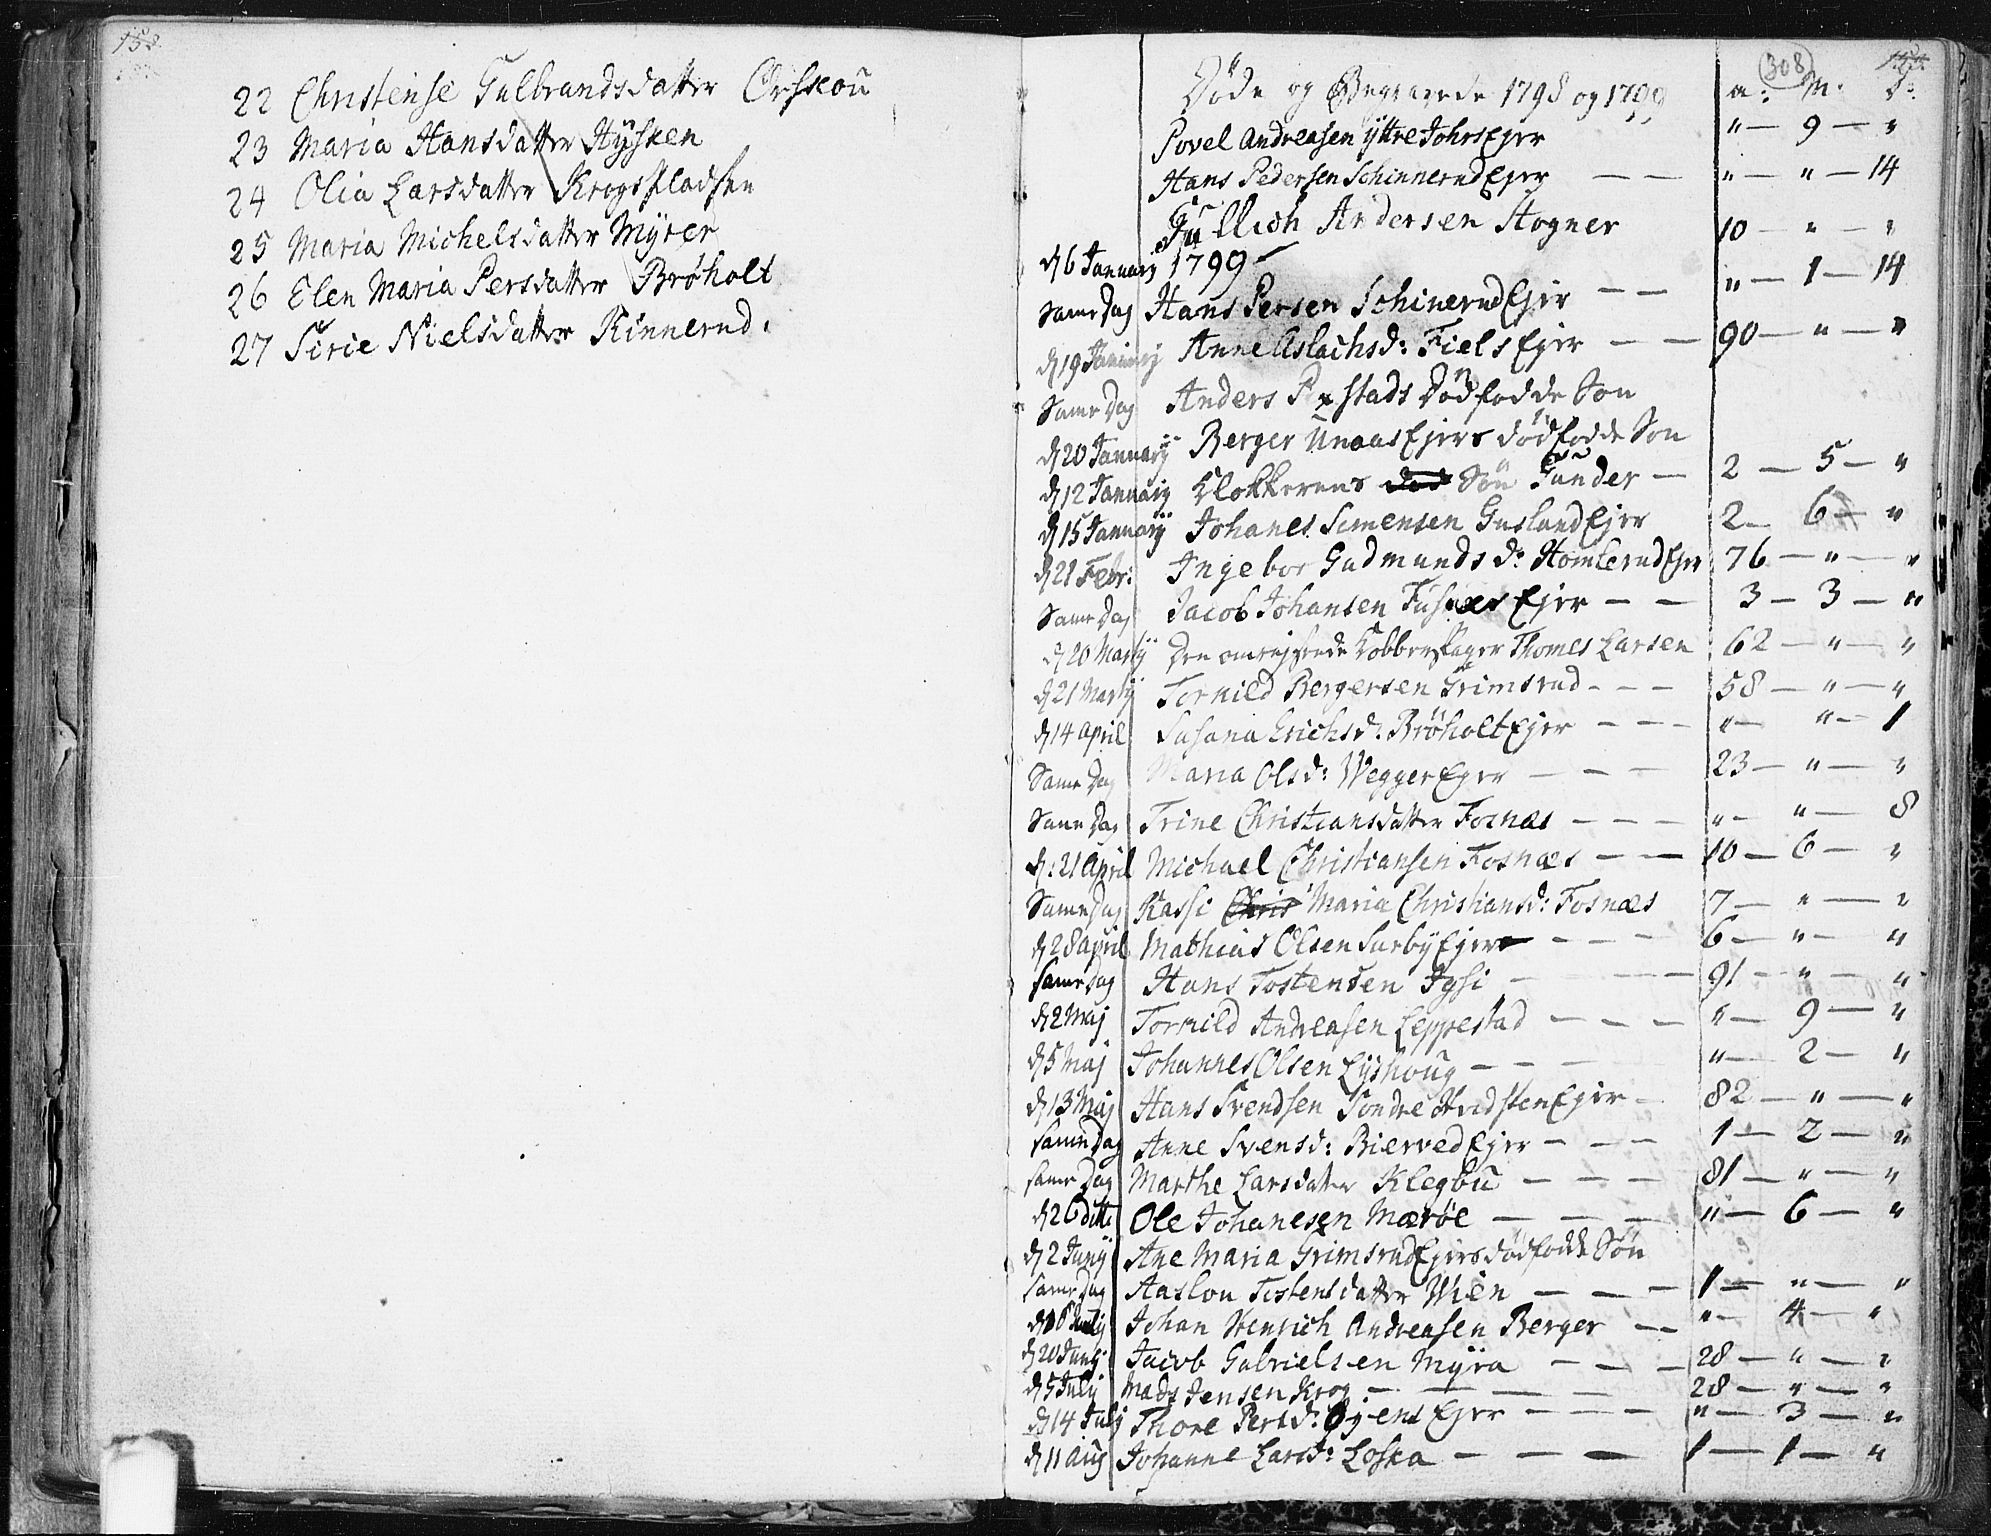 22 Christense Gulbrandsdatter Ørskou
23 Maria Hansdatter Hÿsken
24 Olia Larsdatter Krogspladsen
25 Maria Michelsdatter Mÿrer
26 Elen Maria Persdatter Brøholt
27 Sirie Nielsdatter Kinnerud.
308
Døde og Begravede 1798 og 1799 a: M: D:
Povel Andreasen ÿttre Johrs Ejer " — 9 — "
Hans Pedersen Schinnerud Ejer — — " — " — 14
Gullich Andersen Hogner 10 — " — "
d 6 Januarij 1799 —
Same Dag Hans Persen Schinerud Ejer — — " — 1 — 14
d 19 Januarij Anne Aslachsd: Fiels Ejer — — 90 — " — "
Same Dag Anders stads Dødfødde Søn
d 20 Januarij Berger Unaas Ejers dødfødde Søn
d 12 Januarij Klokkerens Søn Gunder — 2 — 5 — "
d 15 Januarij Johanes Simensen Gusland Ejer 2 — 6 — "
d 21 Febr: Ingebor Gudmundsd: Homlerud Ejer 76 — " — "
Same Dag Jacob Johansen Fusnæs Ejer — — 3 — 3 — "
d 20 Martij Den omrejsende Kobberslager Thomes Larsen 62 — " — "
d 21 Martij Tormild Bergersen Grimsrud - - - 58 — " — "
d 14 April Susana Erichsd: Brøholt Ejer - - - " — " — 1
Same Dag Maria Olsd: Wegger Ejer — — — 23 — " — "
Same Dag Trine Christiansdatter Fosnæs — — — " — " — 8
d: 21 April Michael Christiansen Fosnæs — — 10 — 6 — "
Same Dag Kassi Chris Maria Christiansd: Fosnæs 7 — " — "
d 28 April Mathias Olsen Surby Ejer — — — 6 — " — "
Same Dag Hans Tostensen Jysi — — — 91 — " — "
d 2 Maj Tormild Andreasen Leppestad — — — " — 9 — "
d 5 Maj Johannes Olsen Lÿshoug — — — " — 2 — "
d 13 Maj Hans Svendsen Søndre Hvidsten Ejer — 82 — " — "
Same Dag Anne Svensd: Bierved Ejer — — — 1 — 2 — "
Same Dag Marthe Larsdatter Klegbu — — — 81 — " — "
d 26 ditto Ole Johanesen Mærøe — — — " — 6 — "
d 2 Junij Ane Maria Grimsrud Ejers dødfødde Søn
Same Dag Aaslou Tostensdatter Wien — — — 1 — " — "
Johan Henrich Andreasen Berger — — " — 4 — "
d 20 Junij Jacob Gabrielsen Mÿra — — — 28 — " — "
d 5 Julij Mads Jensen Krog — — — — 28 — " — "
d 14 Julij Thore Persd: Øjens Ejer — — — " — 3 — "
d 11 Aug Johanne Larsd: Loska — — — 1 — 1 — "